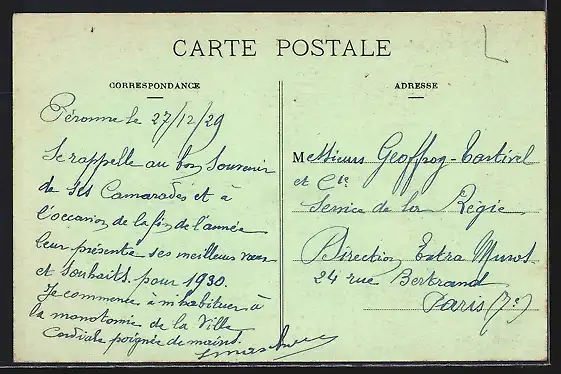 CARTE POSTALE
CORRESPONDANCE
ADRESSE
Péronne le 27/12/29
Se rappelle au bon souvenir
de ses Camarades et à
l'occasion de la fin de l'année
leur présente ses meilleurs vœux
et souhaits pour 1930.
Je commence à m'habituer à
la monotomie de la Ville
Cordiale poignée de mains.
Messieurs Geoffroy-
et Cie
Service de la Régie
Direction Extra Muros
24 rue Bertrand
Paris (7e)